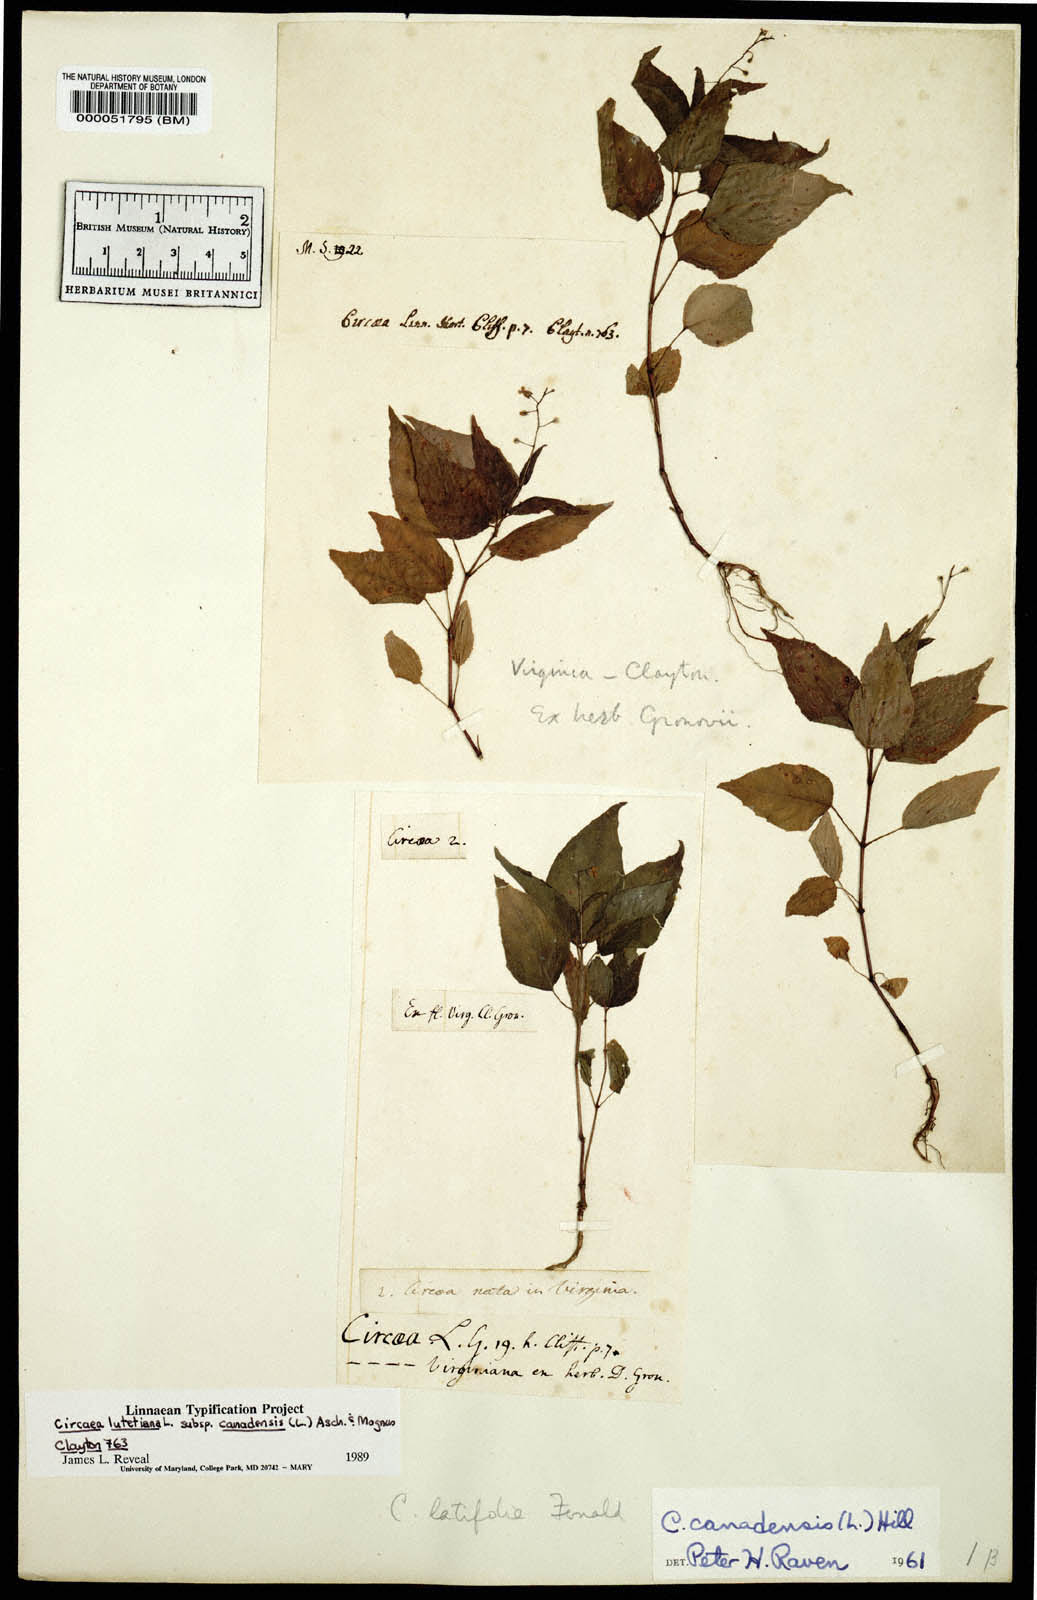 THE NATURAL HISTORY MUSEUM, LONDON
DEPARTMENT OF BOTANY
000051795 (BM)
1 2
BRITISH MUSEUM (NATURAL HISTORY)
1 2 3 4 5
HERBARIUM MUSEI BRITANNICI
22
Circæa Linn. Hort. Cliff. p. 7. Clayt. n. 763.
Virginia – Clayton.
Ex herb Gronovii.
Circæa 2.
Ex fl. Virg. Cl. Gron.
2. Circæa nata in Virginia.
Circæa L. G. 19. h. Cliff. p. 7.
– – – – Virginiana ex herb. D. Gron.
Linnaean Typification Project
Circaea lutetiana L. subsp. canadensis (L.) Asch. & Magnus
Clayton 763
James L. Reveal 1989
University of Maryland, College Park, MD 20742 – MARY
C. latifolia Fernald
C. canadensis (L.) Hill
DET. Peter H. Raven 1961
1 β